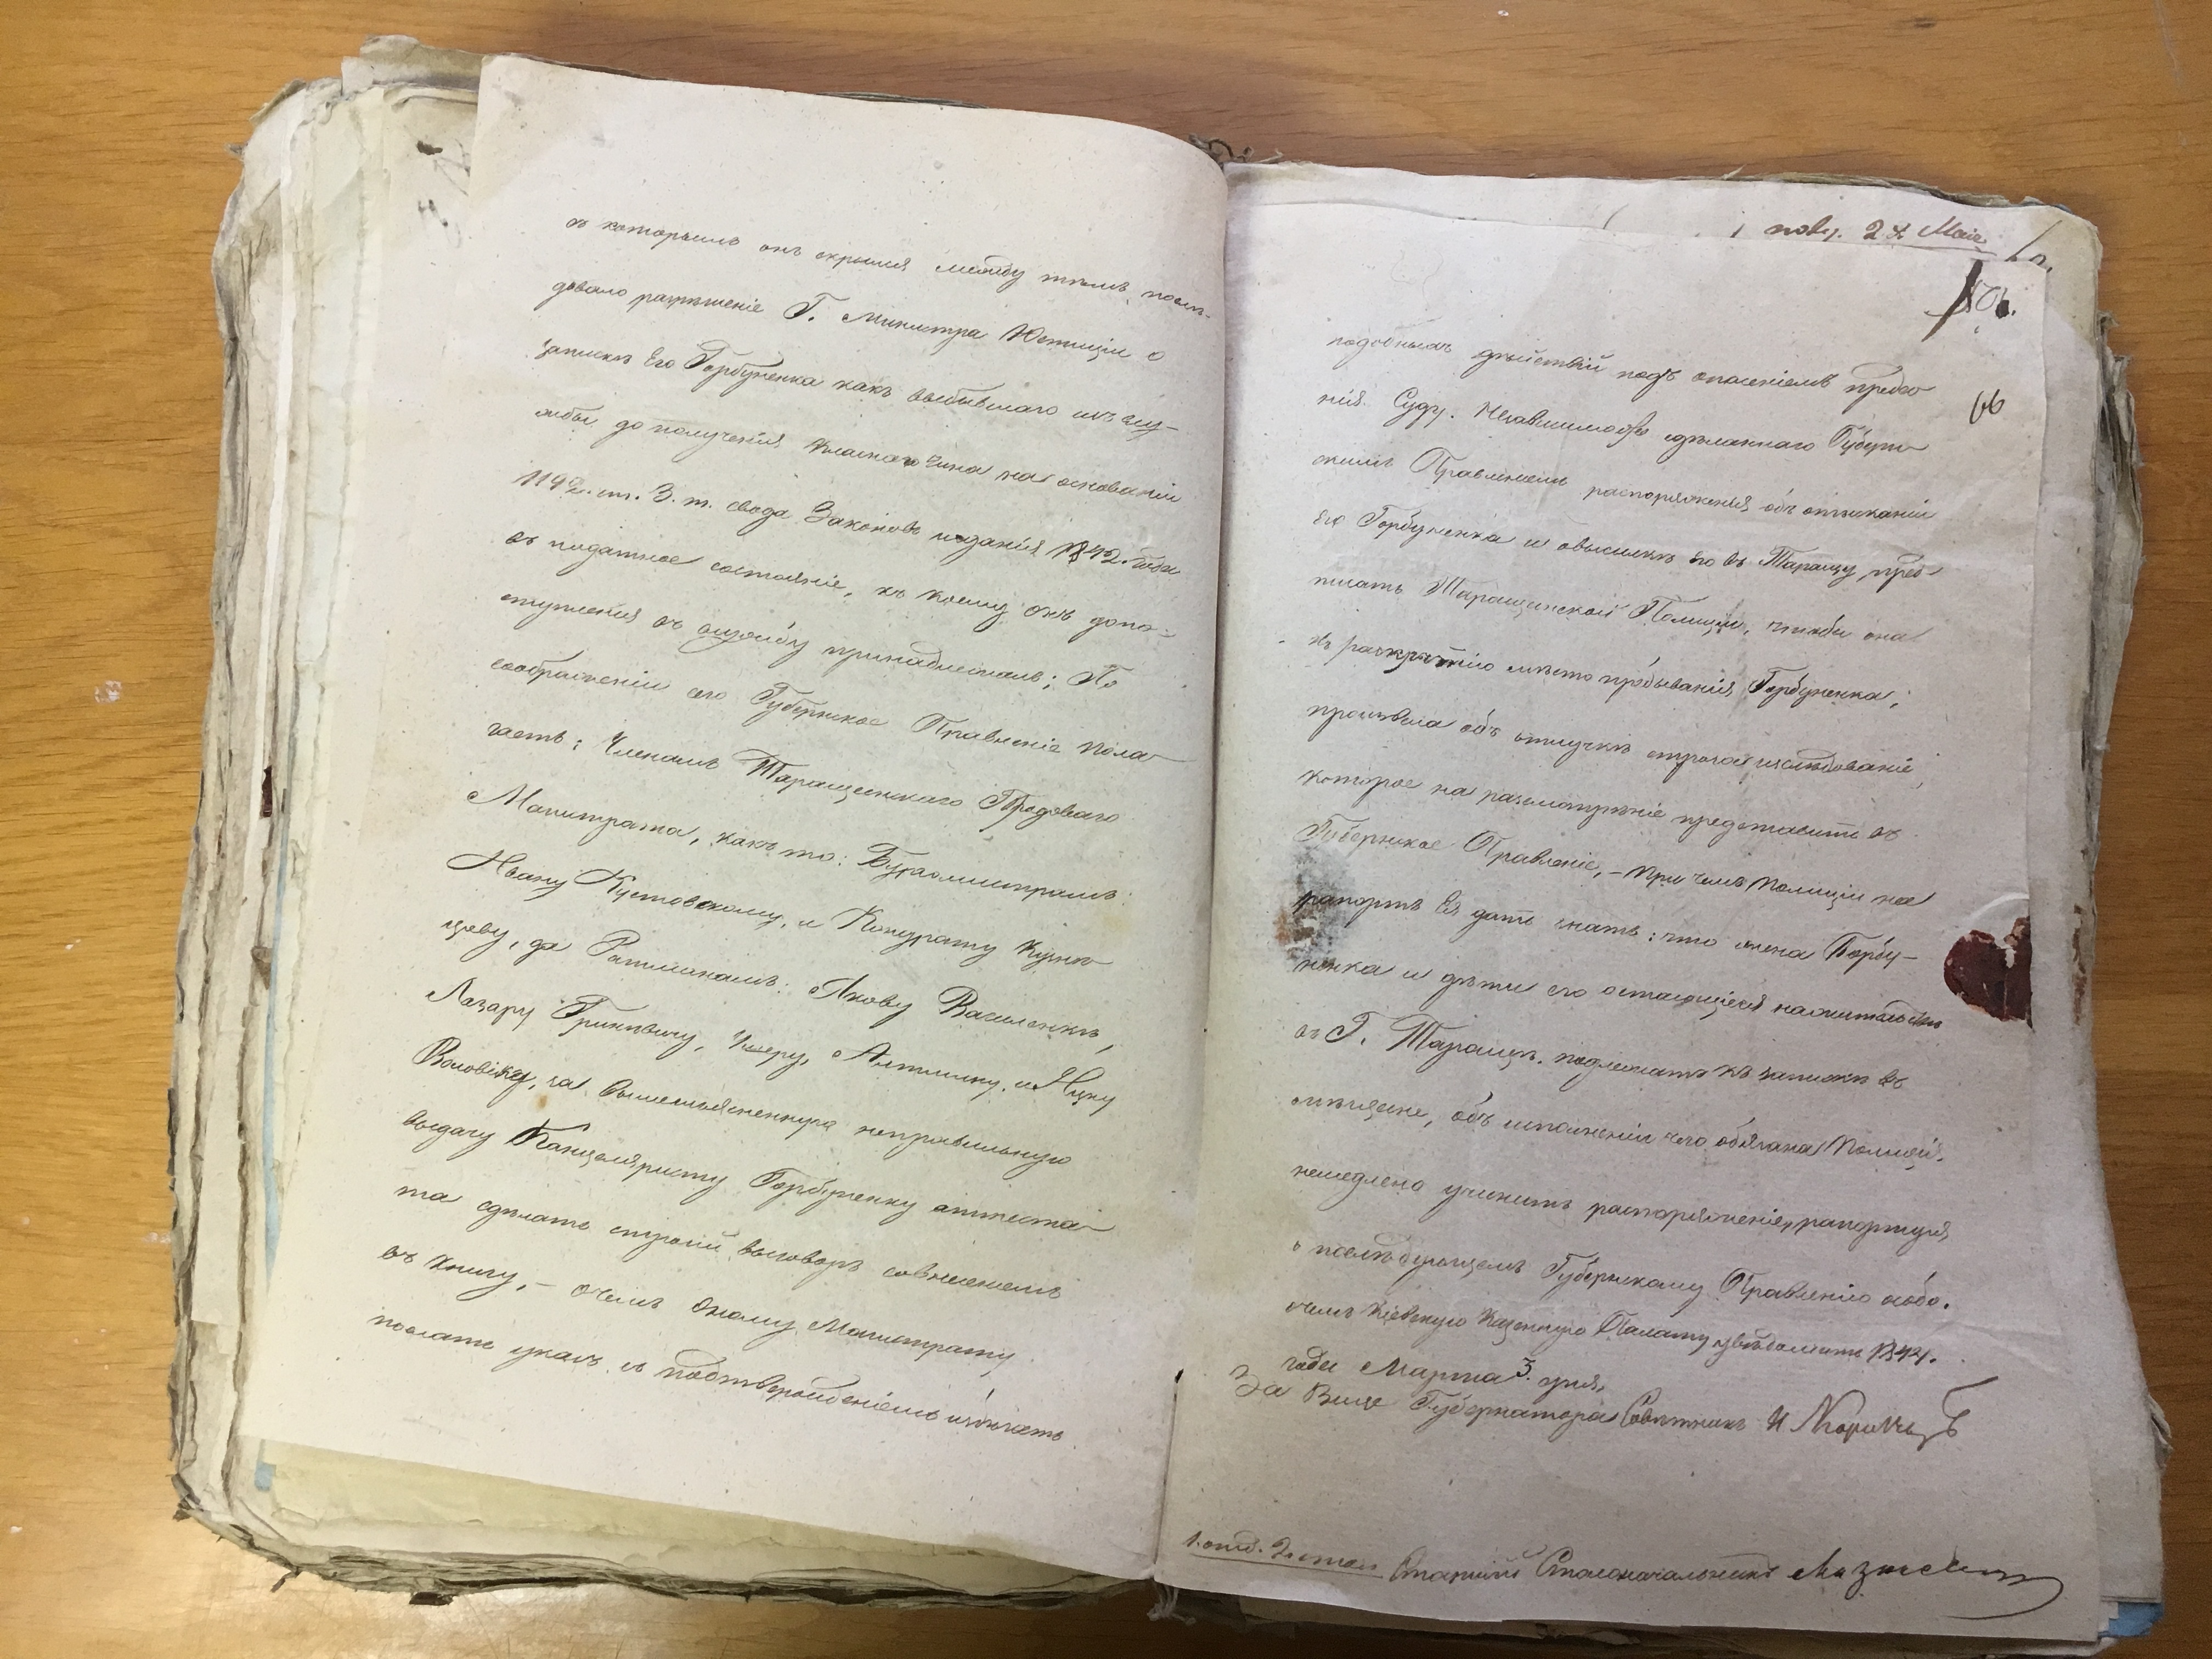 съ которымъ онъ скрылся между тѣмъ, послѣ-
довало разрѣшеніе Г. Министра Юстиціи о
запискѣ Его Горбуненка какъ выбывшаго изъ слу-
жбы до полученія класнаго чина на основаніи
ст. 3. т. свода Законовъ изданія 1842. года
въ податное состояніе, къ коему онъ до по-
ступленія въ службу принадлежалъ; По
соображеніи сего Губернское Правленіе пола-
гаетъ: Членамъ Таращанскаго Градоваго
Магистрата, какъ то: Бургомистрамъ:
Ивану Кустовскому, и Кондрату
цеву, да Ратманамъ: Якову Василенкѣ,
Лазару Гринцевичу, и Ицку
Воловіку, за вышеизъясненную неправильную
выдачу Канцеляристу Горбуненку аттеста-
та сдѣлать строгій выговоръ совнесеніемъ
въ книгу, – очемъ оному Магистрату
послать указъ съ подтвержденіемъ избѣгать
24 Мая
66
подобныхъ дѣйствій подъ опасеніемъ преда-
нія Суду. Независимо отъ сдѣланнаго Губерн-
скимъ Правленіемъ распоряженія объ отысканіи
его Горбуненка и овысылкѣ его въ Таращу, пред-
писать Таращанской Полиціи, чтобы она
къ раскрытію мѣсто пробыванія Горбуненка,
произвела объ отлучкѣ строгое изслѣдованіе,
которое на разсмотрѣніе представить въ
Губернское Правленіе, – при чемъ Полиціи на
рапортъ Ея дать знать: что жена Горбу-
ненка и дѣти его остающіеся на жительствѣ
въ Г. Таращѣ, подлежатъ къ запискѣ въ
мѣщане, объ исполненіи чего обязана Полиція,
немедлено учинить распоряженіе, рапортуя
о послѣдующемъ Губернскому Правленію особо.
очемъ Кіевскую Казенную Палату увѣдомить 1844.
года Марта 3. дня.
За Вице Губернатора Совѣтникъ И
1. отд. 2. стол. Старшій Столоначальникъ